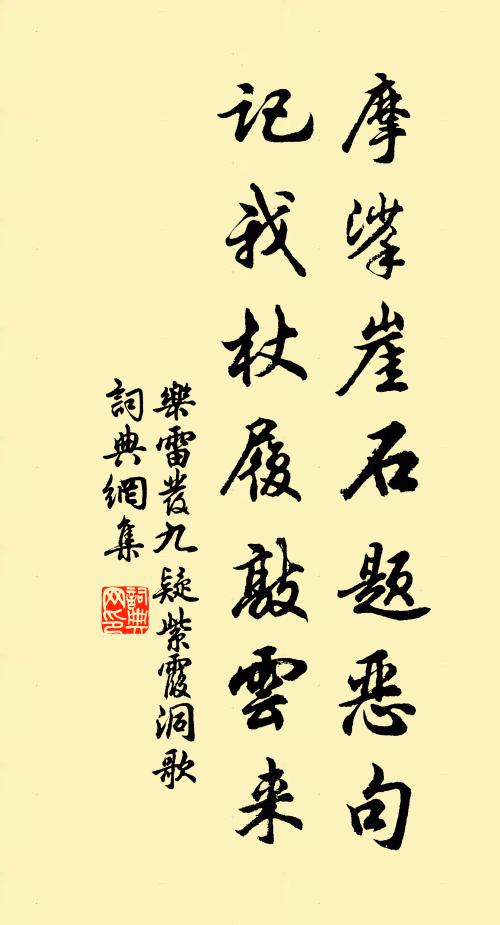 摩挲崖石题恶句
记我杖履敲雲来
樂雷發九疑紫霞洞歌
詞典網集
詞典网印